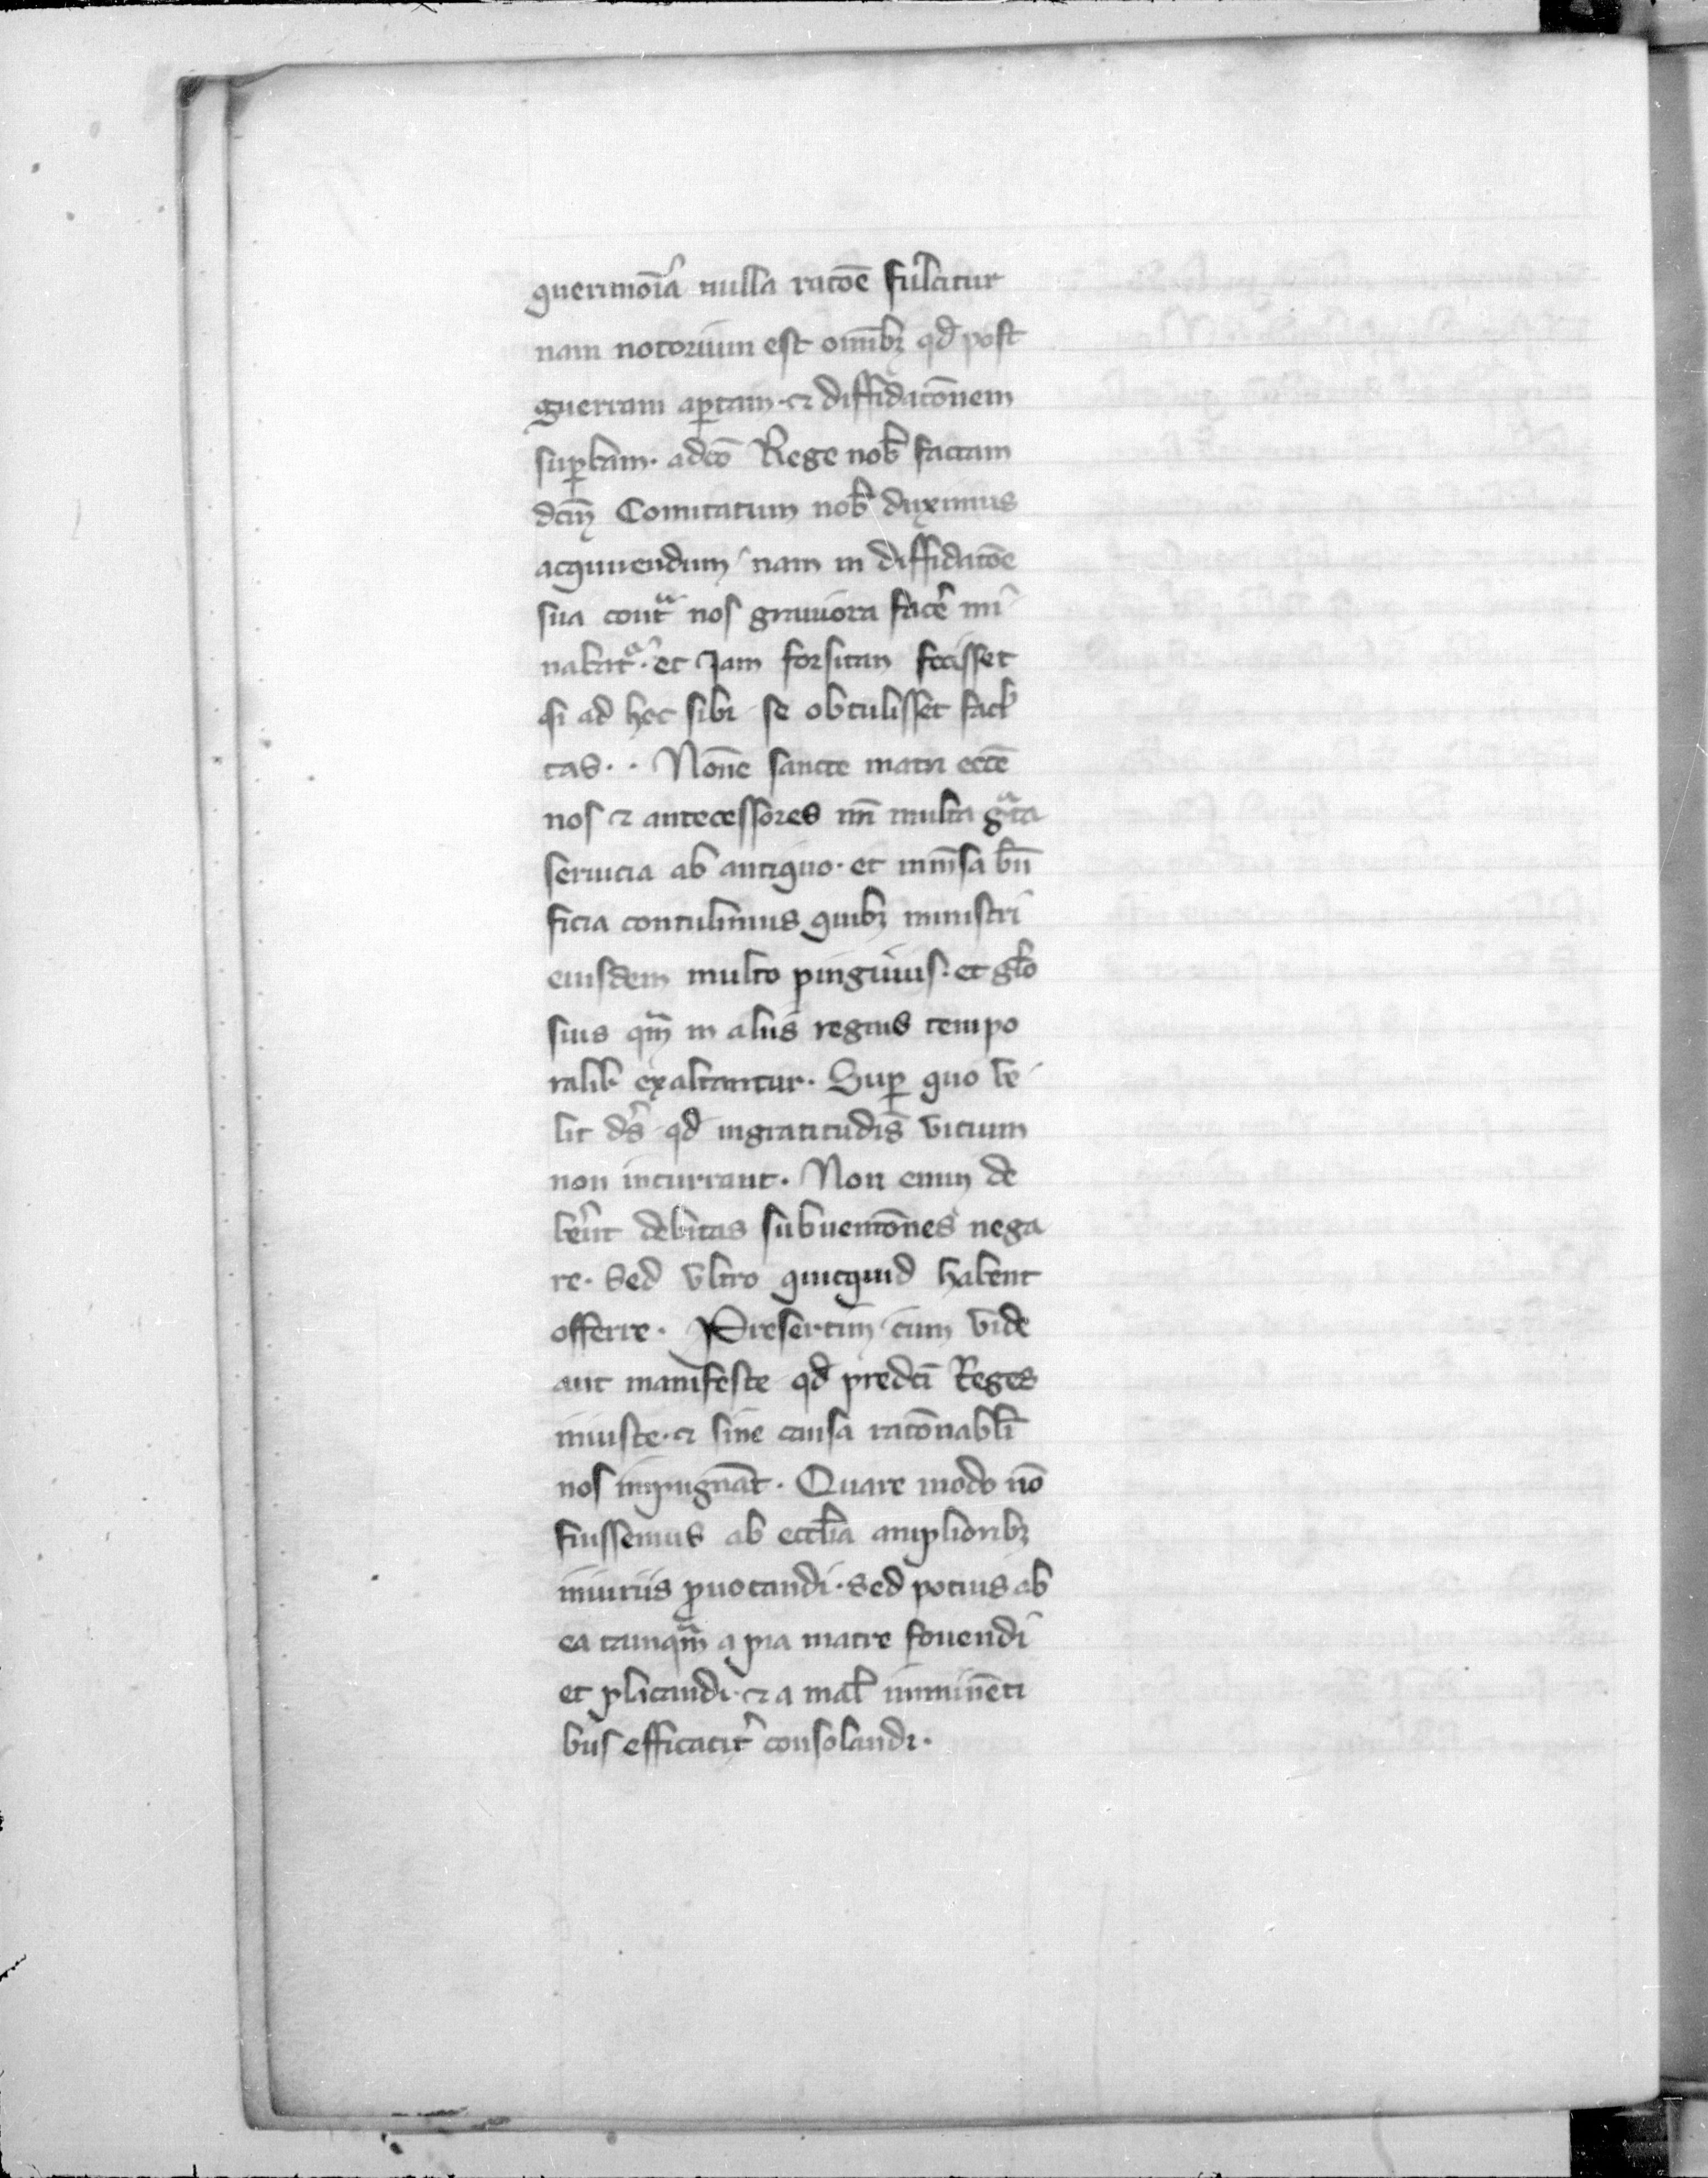 querimoīa nulla racōe fulcitur
nam notorium est omībꝫ qđ post
guerram aꝑtam · ⁊ diffidacōnem
suꝑbam · a dc̄o Rege nob̄ factam
dcm̄ Comitatum nob̄ duximus
acquirendum nam in diffidacōe
sua contᵃ nos grauiora facē mi
nabatᵃ · et Jam forsitan fecisset
si ad hec sibi se obtulisset facl̄
tas · · Nōne sancte matri eccē
nos ⁊ antecessores nr̄i multa gᵃta
seruicia ab antiquo · et inmēsa bn̄
ficia contulimus quibꝫ ministri
eiusdem multo pinguius · et gl̄o
sius qm̄ in aliis regnis tempo
ralib̄ exaltantur · Suꝑ quo ve
lit ds̄ qđ ingratitudis̄ vicium
non incurrant · Non enim de
ber̄nt debitas subuencōnes nega
re · Sed vltro quicquid habent
offerre · Presertim cum vide
ant manifeste qđ predc̄i Reges
iniuste · ⁊ sine causa racōnabl̄i
nos inpugnāt · Quare modo nō
fuissemus ab eccl̄ia amplioribꝫ
iniuriis ꝓuocandi · sed potius ab
ea tanqm̄ a pia matre fouendi
et placandi · ⁊ a mal̄ iminēti
bus efficacit̄ consolandi ·